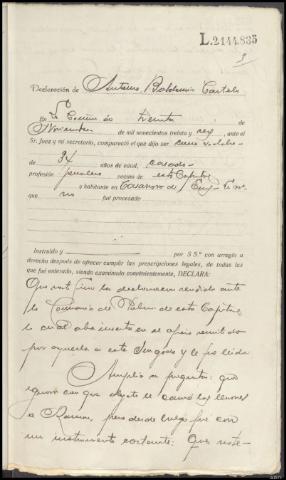 L.2144.835
Declaración de Antonio
En La Coruña a treinta de
Noviembre de mil novecientos treinta y seis, ante el
Sr. Juez y mi secretario, compareció el que dijo ser como
de 34 años de edad, casado
profesión jornalero vecino de esta Capital
y habitante en Casanova de
que no fue procesado
Instruido y por S Sª con arreglo a
derecho después de ofrecer cumplir las prescripciones legales, de todas las
que fué enterado, siendo examinado convenientemente, DECLARA:
Que ratifica la declaración rendida ante
la Comisaria de de esta Capital,
la cual aba inserta en el oficio remitido
por aquella a este Juzgado y le fue leida
Ampliada a preguntas: que
ignora con que objeto le causó las lesiones
a Ramon, pero desde luego fue con
un instrumento cortante: Que